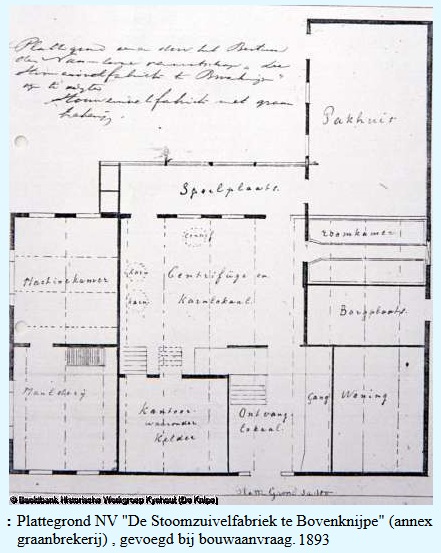 Plattegrond van
het Bestuur
der Naamlooze vennootschap "de
Stoomzuivelfabriek te
op te
Stoomzuivelfabriek met graan
Pakhuis
Spoelplaats.
roomkamer
centrif
Machinekamer
karn
Centrifuge en
karn
Karnlokaal
Bergplaats
Maalderij
Kantoor
waaronder
Kelder
Ontvang
lokaal.
Gang
Woning
Platte Grond
© Beeldbank Historische Werkgroep Kynhout (De Knipe)
: Plattegrond NV "De Stoomzuivelfabriek te Bovenknijpe" (annex
graanbrekerij) , gevoegd bij bouwaanvraag. 1893